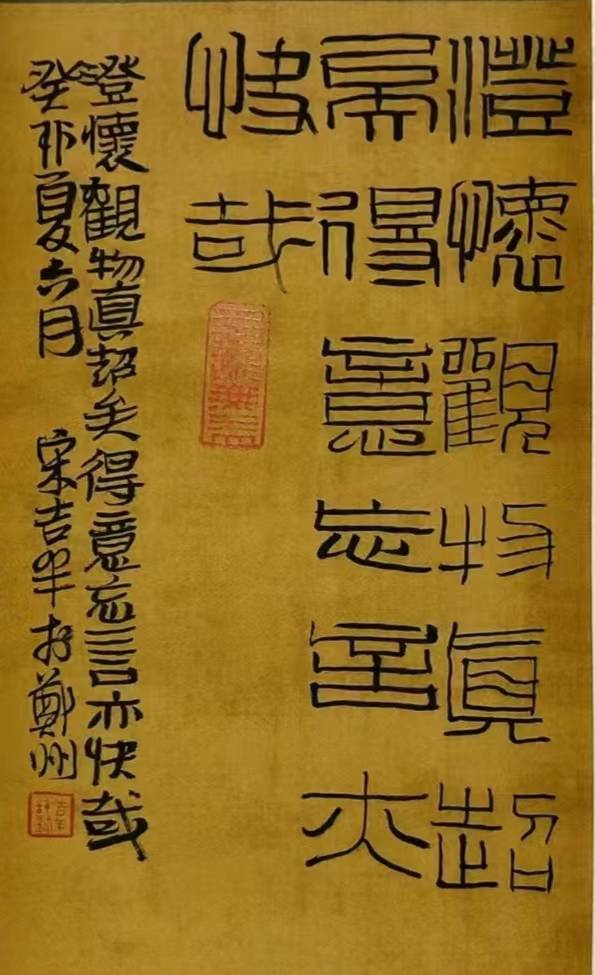 澄懷觀物真超
矣得意忘言亦
快哉
澄懷觀物真超矣得意忘言亦快哉
癸卯夏六月 宋吉羊於鄭州